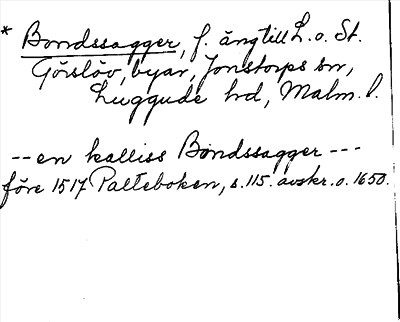 * Bondssagger, f. äng till L. o. St.
Görslöv, byar, Jonstorps sn,
Luggude hd, Malm. l.
-- en kalliss Bondssagger ---
före 1517 Palteboken, s. 115. avskr. o. 1650.